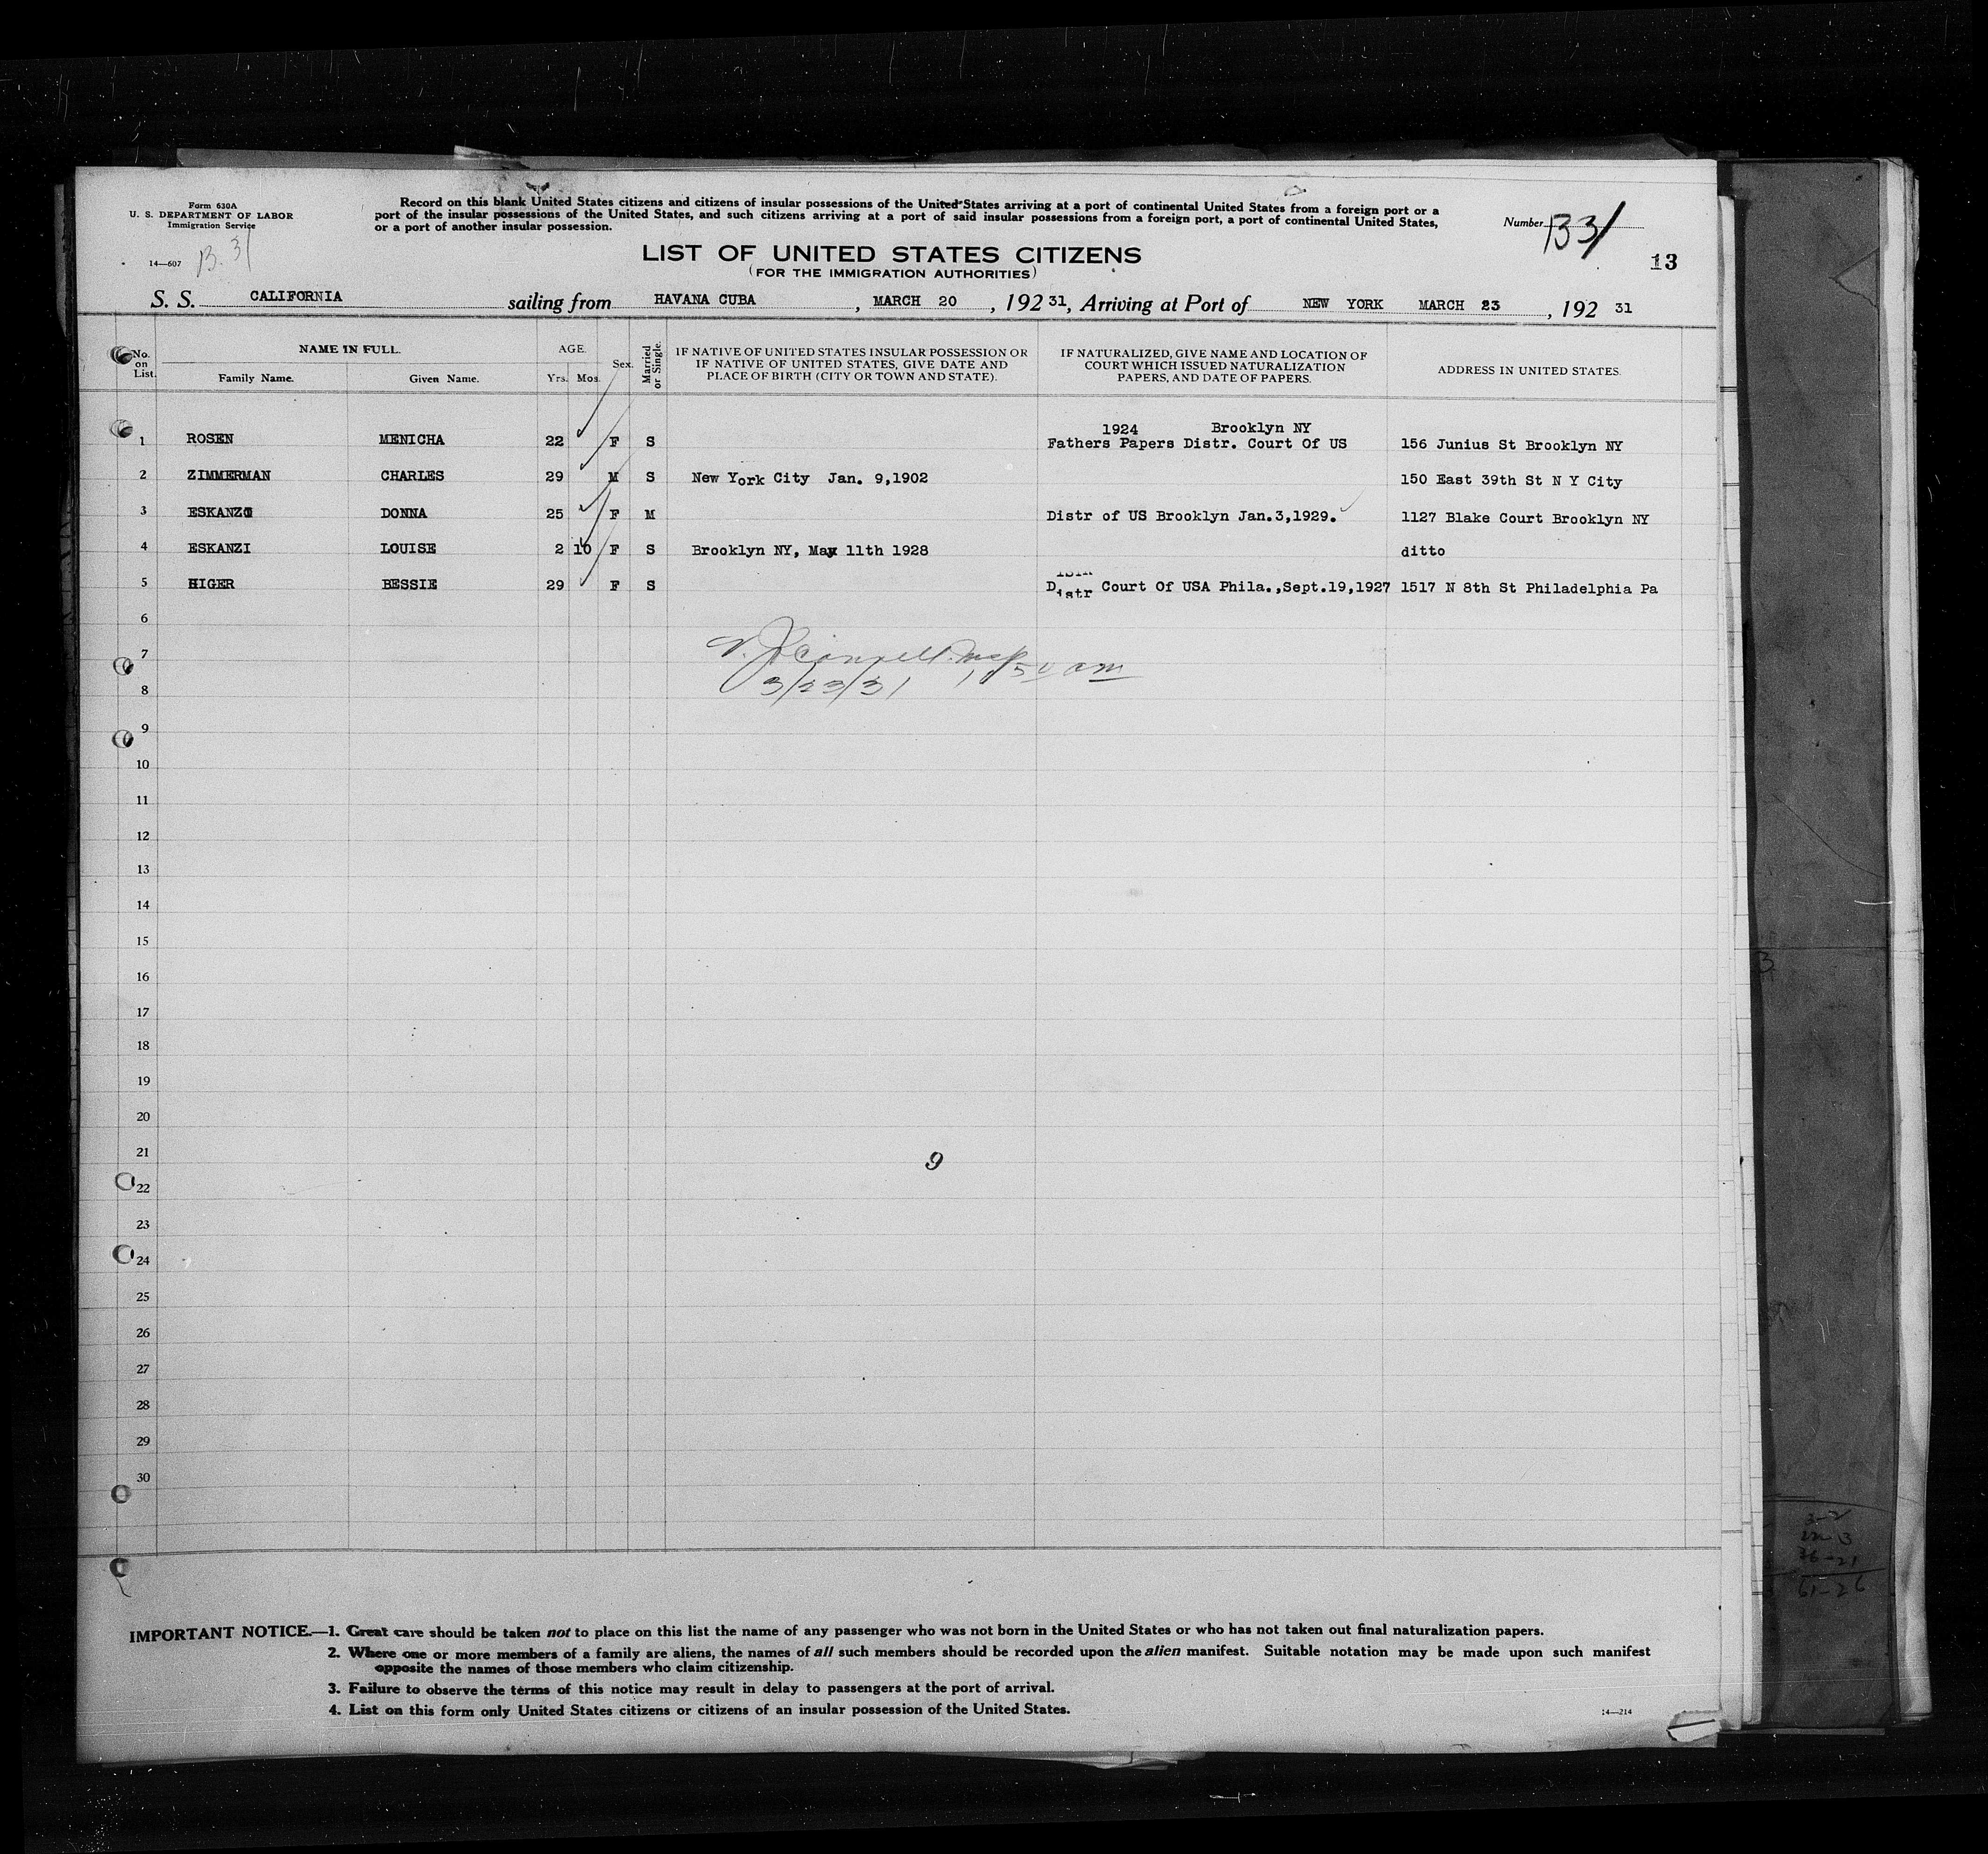 Form 630A
U. S. DEPARTMENT OF LABOR
Immigration Service
14—607
B. 31
Record on this blank United States citizens and citizens of insular possessions of the United States arriving at a port of continental United States from a foreign port or a
port of the insular possessions of the United States, and such citizens arriving at a port of said insular possessions from a foreign port, a port of continental United States,
or a port of another insular possession.
Number 331
13
LIST OF UNITED STATES CITIZENS
(FOR THE IMMIGRATION AUTHORITIES)
S. S. CALIFORNIA sailing from HAVANA CUBA, MARCH 20, 192 31, Arriving at Port of NEW YORK MARCH 23, 192 31
No. on List. NAME IN FULL. Family Name. Given Name. AGE. Yrs. Mos. Sex. Married or Single. IF NATIVE OF UNITED STATES INSULAR POSSESSION OR IF NATIVE OF UNITED STATES, GIVE DATE AND PLACE OF BIRTH (CITY OR TOWN AND STATE). IF NATURALIZED, GIVE NAME AND LOCATION OF COURT WHICH ISSUED NATURALIZATION PAPERS, AND DATE OF PAPERS. ADDRESS IN UNITED STATES.
1924 Brooklyn NY
1 ROSEN MENICHA 22 F S Fathers Papers Distr. Court Of US 156 Junius St Brooklyn NY
2 ZIMMERMAN CHARLES 29 M S New York City Jan. 9,1902 150 East 39th St N Y City
3 ESKANZI DONNA 25 F M Distr of US Brooklyn Jan.3,1929. 1127 Blake Court Brooklyn NY
4 ESKANZI LOUISE 2 10 F S Brooklyn NY, May 11th 1928 ditto
5 HIGER BESSIE 29 F S Distr Court Of USA Phila.,Sept.19,1927 1517 N 8th St Philadelphia Pa
6
7
3/23/31 am
8
9
10
11
12
13
14
15
16
17
18
19
20
21
9
22
23
24
25
26
27
28
29
30
IMPORTANT NOTICE.—1. Great care should be taken not to place on this list the name of any passenger who was not born in the United States or who has not taken out final naturalization papers.
2. Where one or more members of a family are aliens, the names of all such members should be recorded upon the alien manifest. Suitable notation may be made upon such manifest
opposite the names of those members who claim citizenship.
3. Failure to observe the terms of this notice may result in delay to passengers at the port of arrival.
4. List on this form only United States citizens or citizens of an insular possession of the United States.
14—214